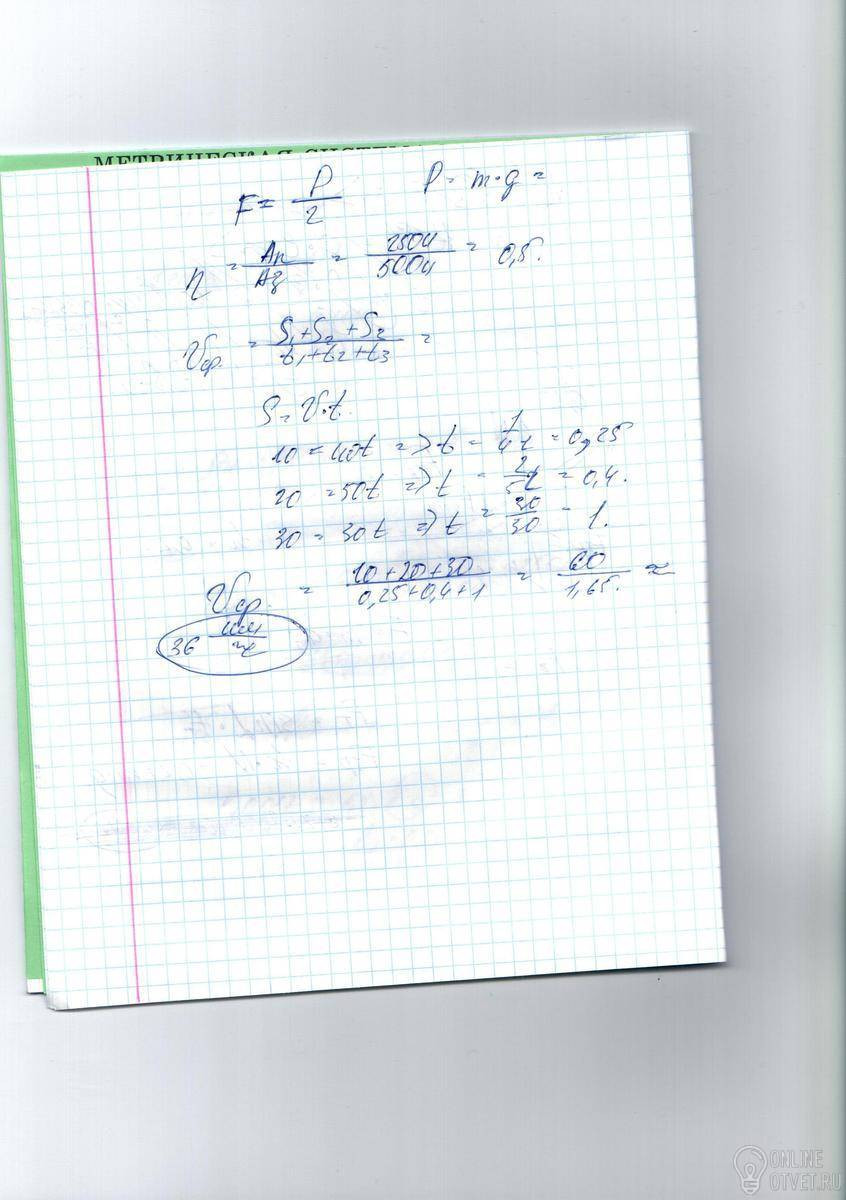 МЕТРИЧЕСКАЯ СИСТЕМА
F = P/2 P = m·g =
η = Aп/Aз = 250И/500И = 0,5.
Vср. = S₁+S₂+S₂/t₁+t₂+t₃ =
S = V·t.
10 = 40t => t = 1/4 = 0,25
20 = 50t => t = 2/5 = 0,4.
30 = 30t => t = 30/30 = 1.
Vср. = 10+20+30/0,25+0,4+1 = 60/1,65. ≈
36 км/ч
ONLINE
OTVET.RU